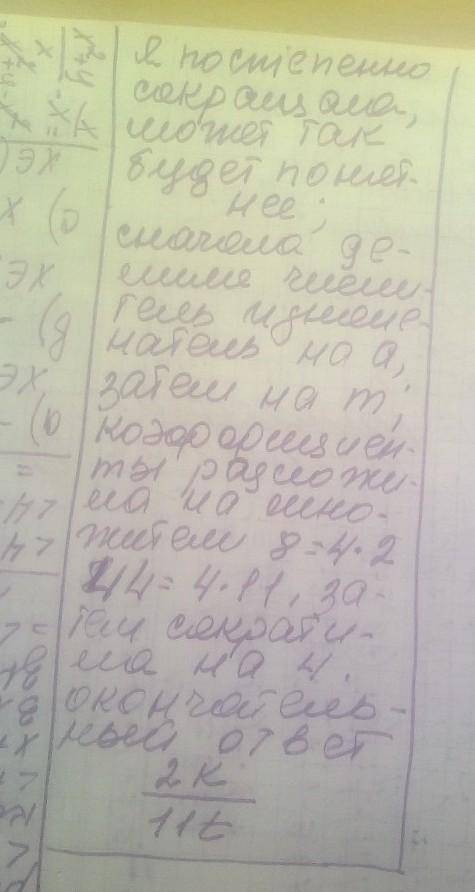 Я постепенно
сокращала,
может так
будет понят-
нее;
сначала де-
лима числи-
тель и знаме-
натель на a,
затем на m;
коэффициен-
ты разложи-
ла на мно-
жители 8=4·2
44=4·11, за-
тем сократи-
ла на 4.
окончатель-
ный ответ
2k
11t